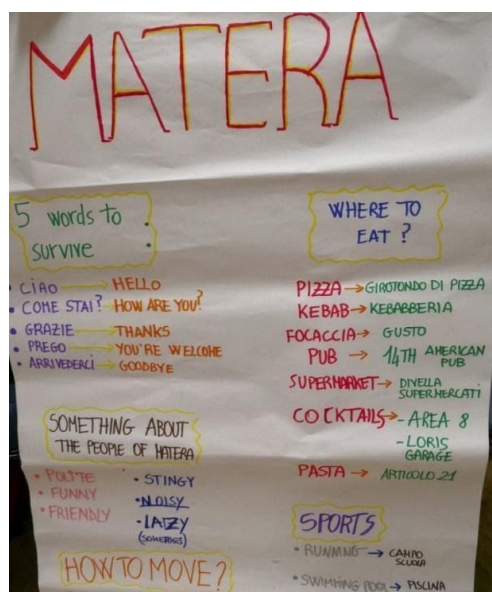 MATERA
5 words to
survive
• CIAO → HELLO
• COME STAI? → HOW ARE YOU?
• GRAZIE → THANKS
• PREGO → YOU'RE WELCOME
• ARRIVEDERCI → GOODBYE
SOMETHING ABOUT
THE PEOPLE OF MATERA
• POLITE
• FUNNY
• FRIENDLY
• STINGY
• NOISY
• LAZY
(SOMETIMES)
HOW TO MOVE?
WHERE TO
EAT?
PIZZA → GIROTONDO DI PIZZA
KEBAB → KEBABBERIA
FOCACCIA → GUSTO
PUB → 14TH AMERICAN
PUB
SUPERMARKET → DIVELLA
SUPERMERCATI
COCKTAILS → - AREA 8
- LORIS
GARAGE
PASTA → ARTICOLO 21
SPORTS
• RUNNING → CAMPO
SCUOLA
• SWIMMING POOL → PISCINA